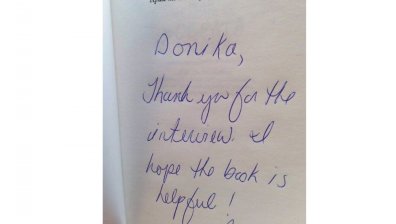 Donika,
Thank you for the
interview. I
hope the book is
helpful!